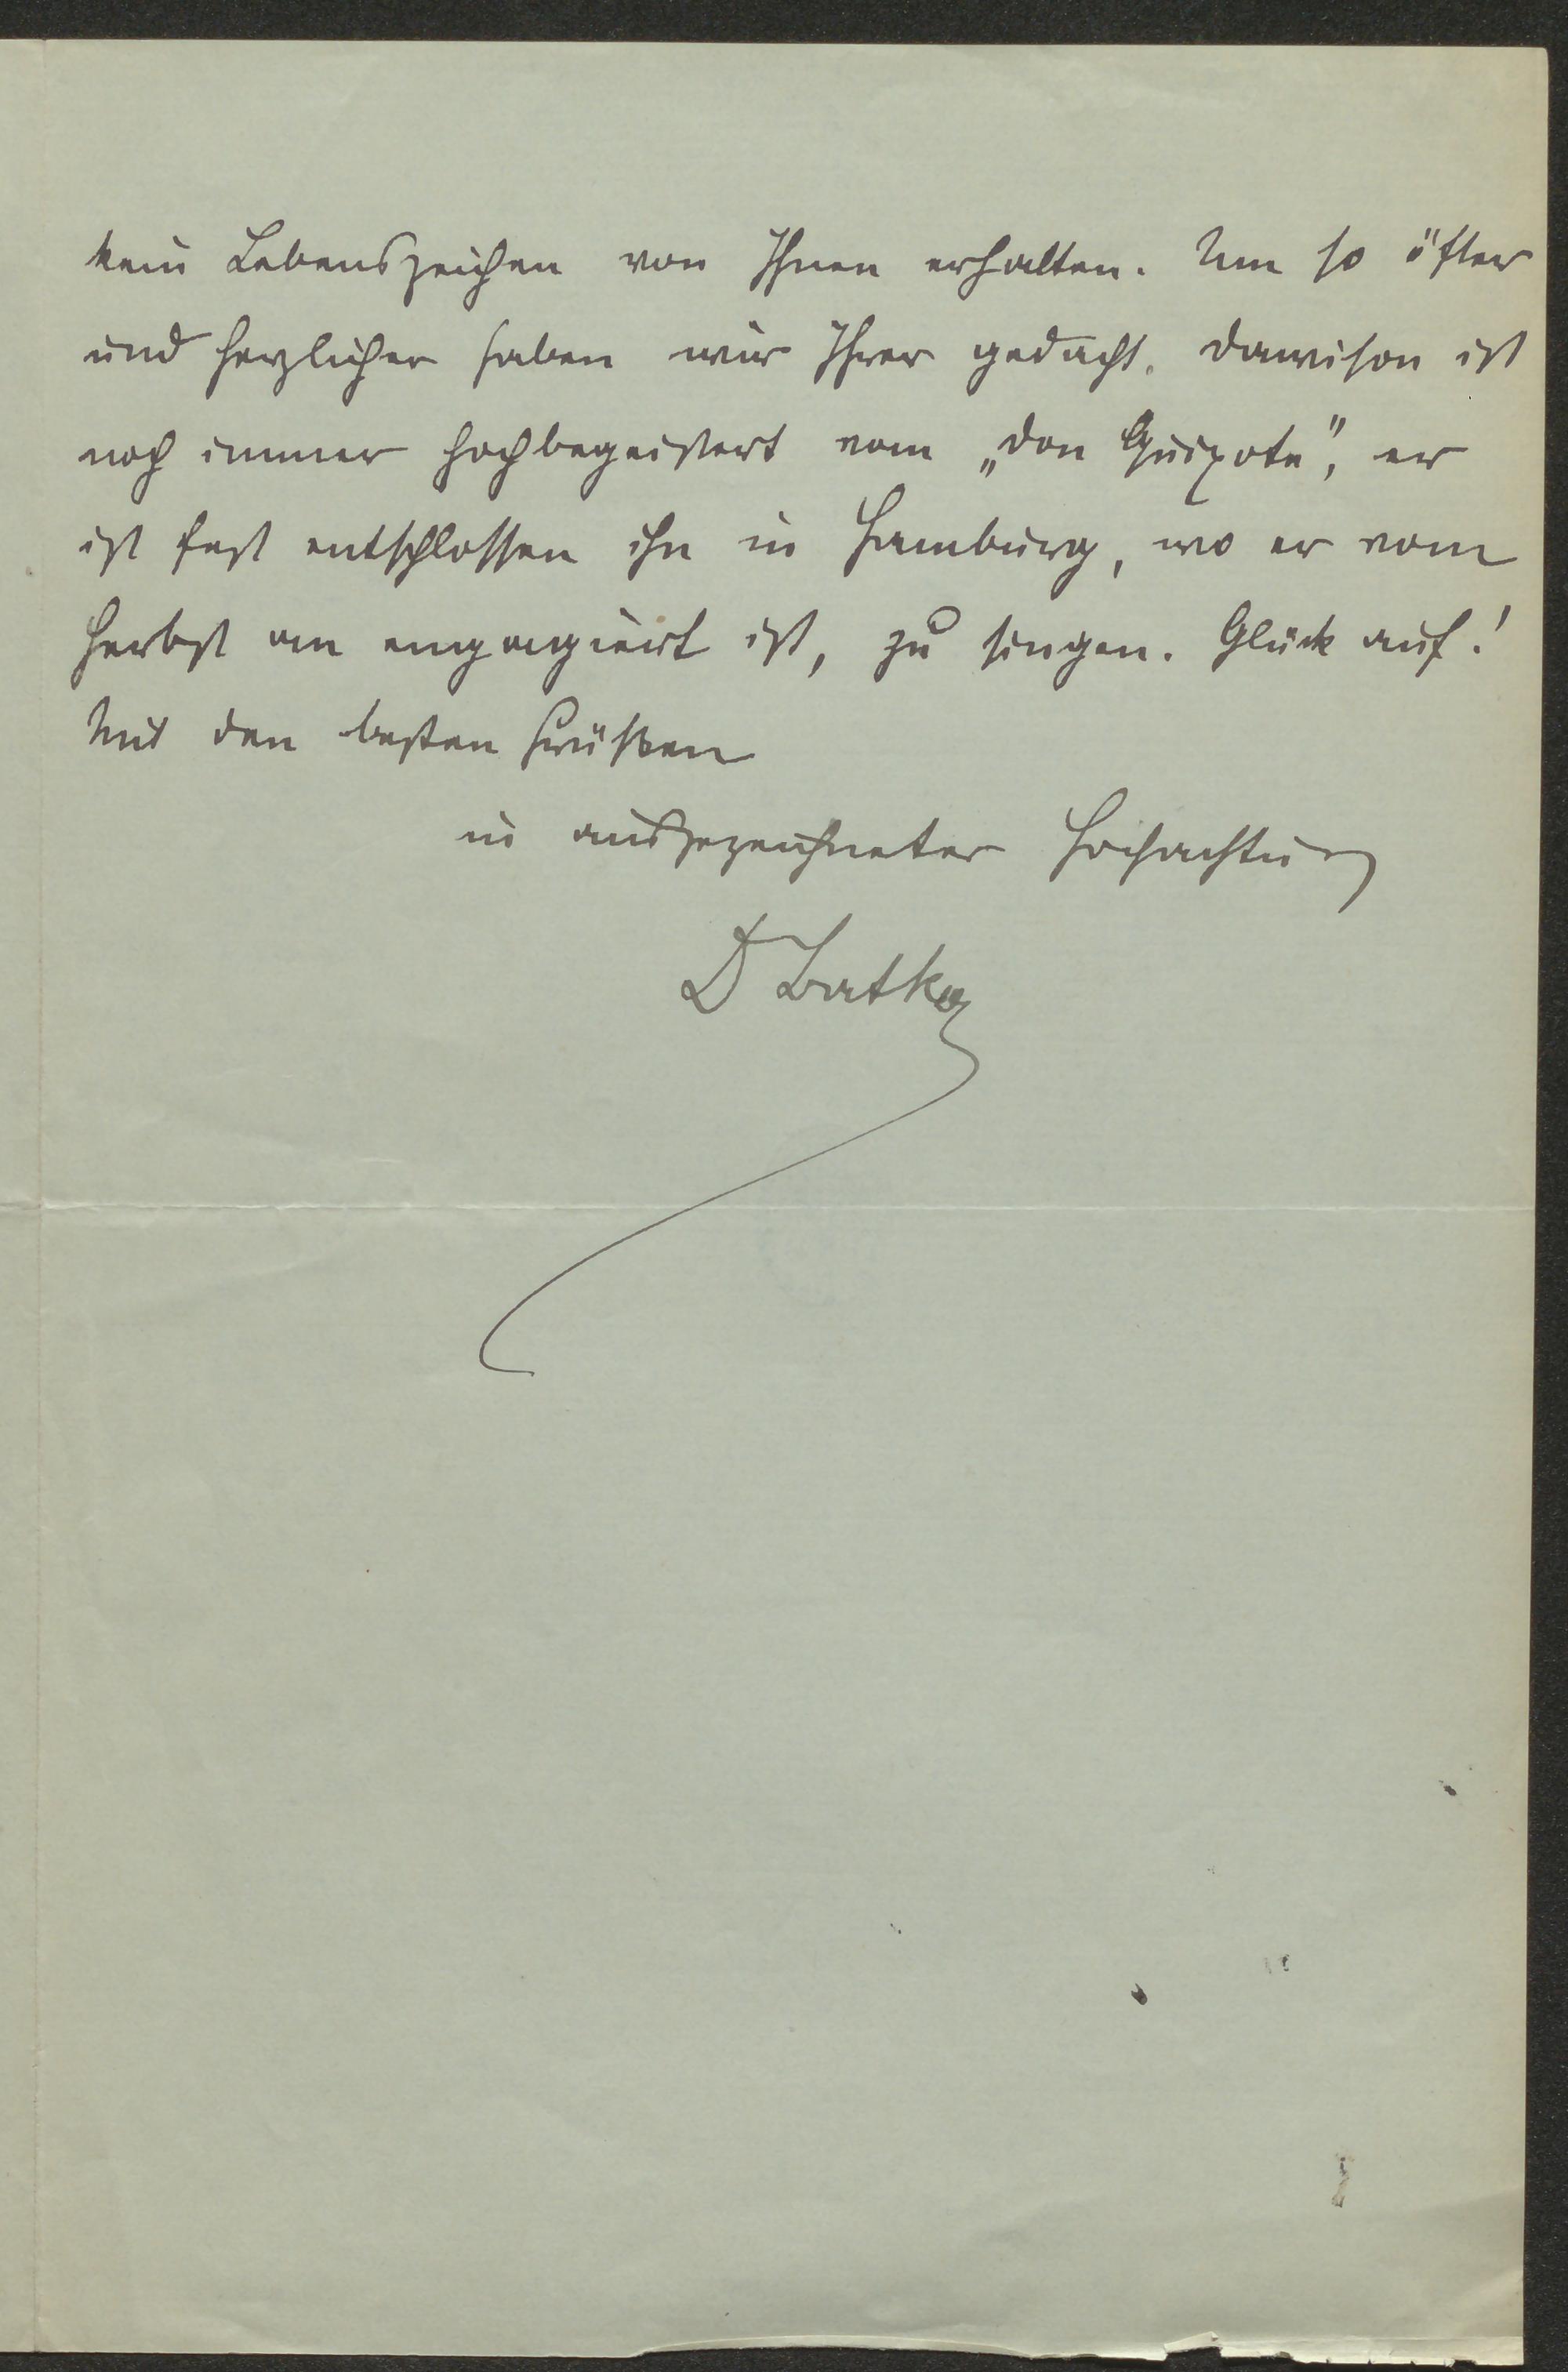 kein Lebenszeichen von Ihnen erhalten. Um so öfter
und herzlicher haben wir Ihrer gedacht. Dawison ist
noch immer hochbegeistert vom „Don Quixote", er
ist fest entschlossen ihn in Hamburg, wo er vom
Herbst an engagiert ist, zu singen. Glück auf!
Mit den besten Grüßen
in ausgezeichneter Hochachtung
D Batka